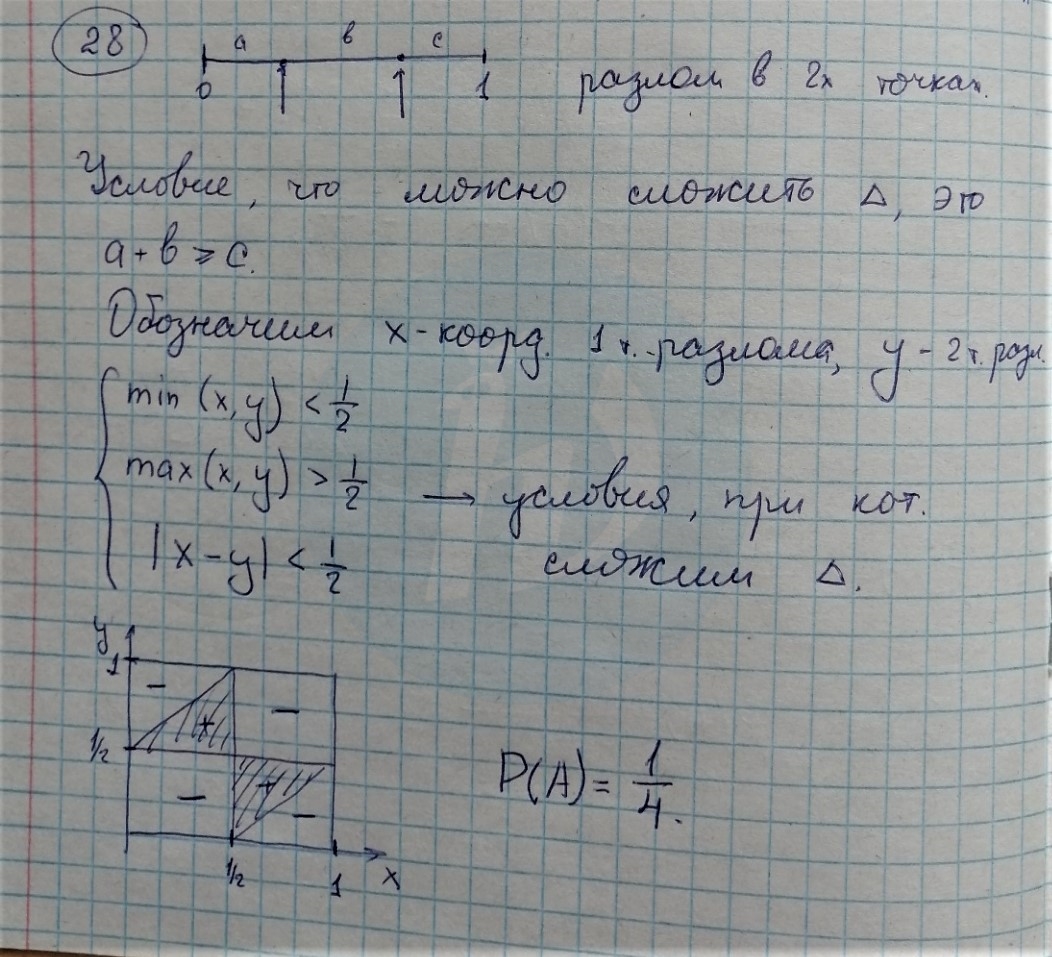 28
a в c
0 1 разлом в 2х точках.
Условие, что можно сложить Δ, это
a + в ⩾ c.
Обозначим x - коорд. 1 т. разлома, y - 2 т. разл.
min (x, y) < 1/2
max (x, y) > 1/2 → условия, при кот.
|x - y| < 1/2 сложим Δ.
y
1
- + -
1/2
- + -
1/2 1 x
P(A) = 1/4.